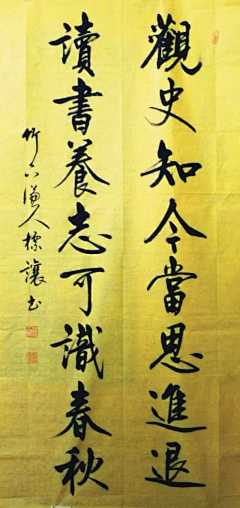 觀史知今當思進退
讀書養志可識春秋
竹下逸人標讓书